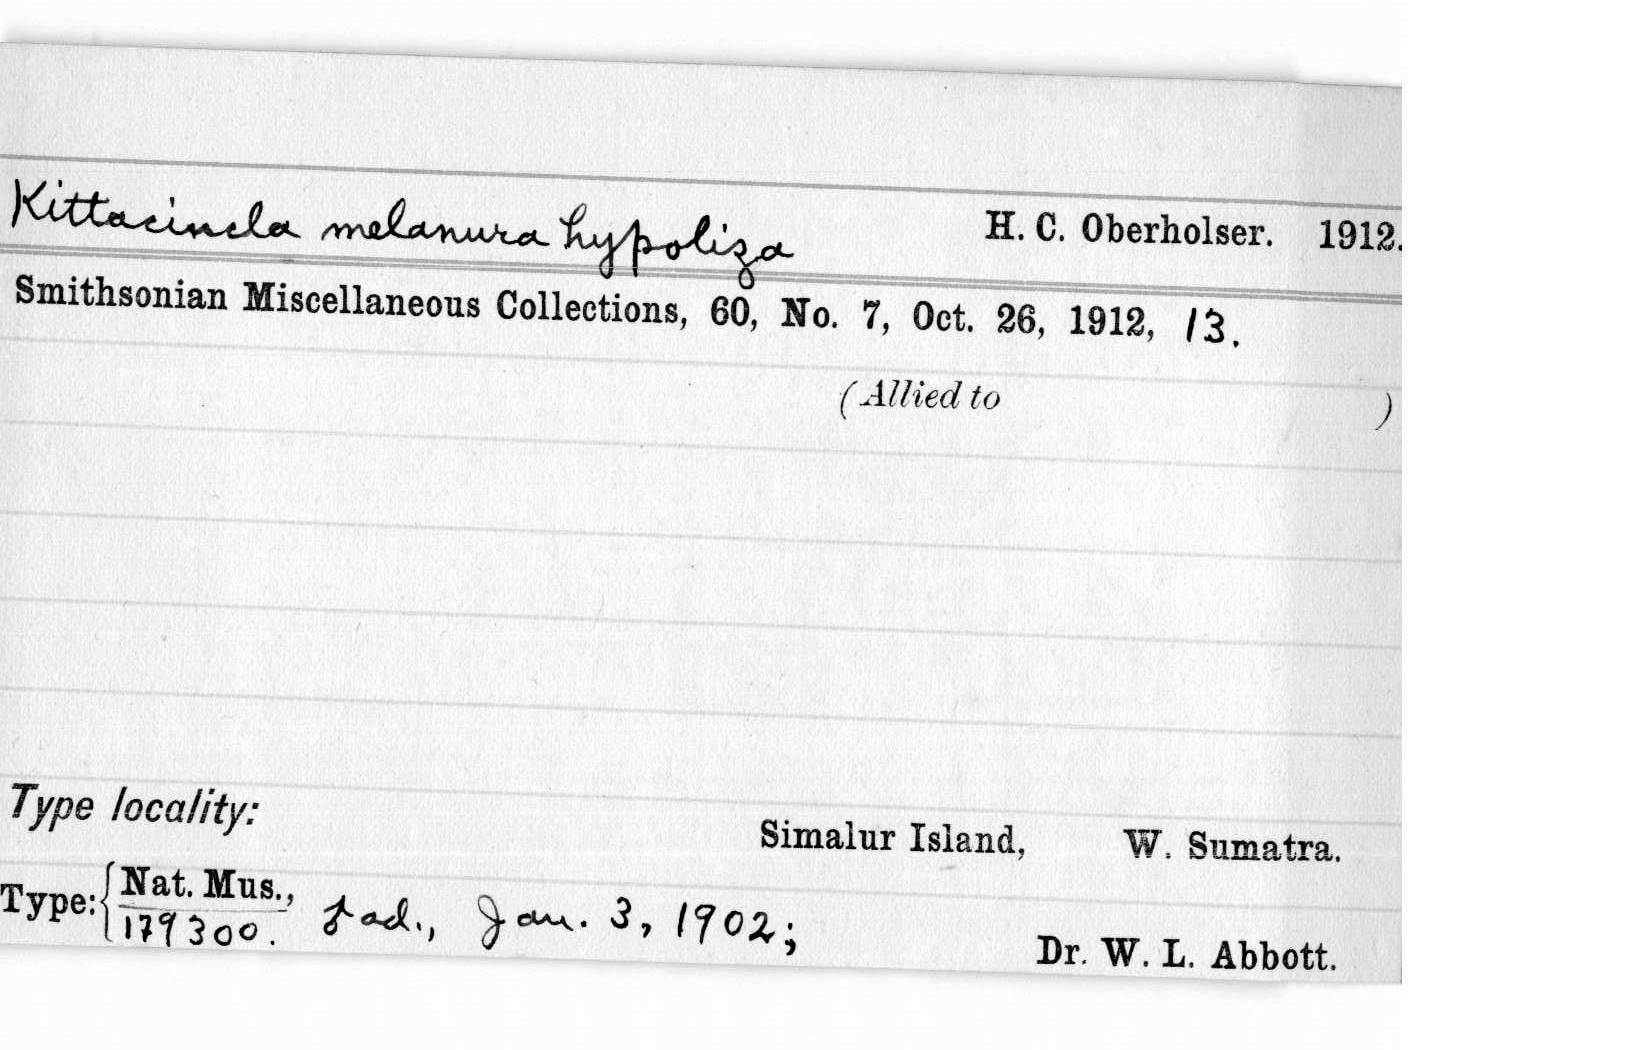 Kittacincla melanura hypoliza H. C. Oberholser. 1912.
Smithsonian Miscellaneous Collections, 60, No. 7, Oct. 26, 1912, 13.
(Allied to )
Type locality:
Simalur Island, W. Sumatra.
Type: { Nat. Mus.,
179300. ad., Jan. 3, 1902;
Dr. W. L. Abbott.